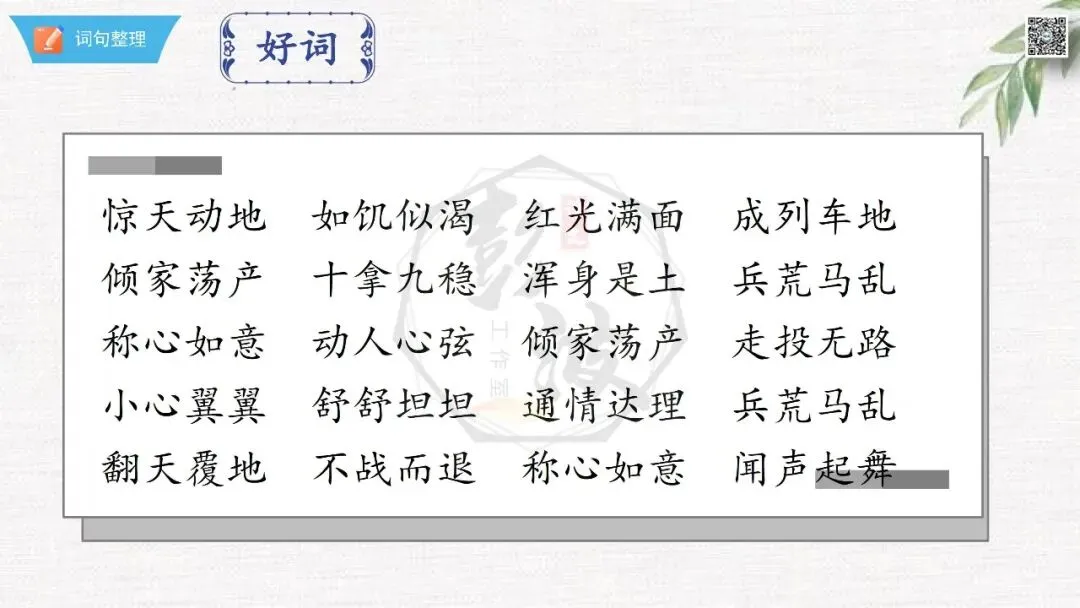 词句整理
好词
惊天动地 如饥似渴 红光满面 成列车地
倾家荡产 十拿九稳 浑身是土 兵荒马乱
称心如意 动人心弦 倾家荡产 走投无路
小心翼翼 舒舒坦坦 通情达理 兵荒马乱
翻天覆地 不战而退 称心如意 闻声起舞
工作室